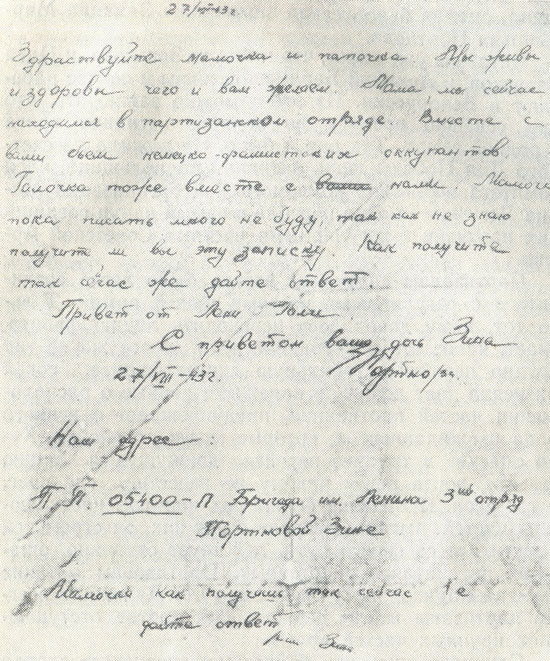 27/VII-43г.
Здраствуйте мамочка и папочка Мы живы
и здоровы чего и вам желаем. Мама мы сейчас
находимся в партизанском отряде. Вместе с
вами бьем немецко-фашистских оккупантов.
Галочка тоже вместе с нами. Мамочка
пока писать много не буду, так как не знаю
получите ли вы эту записку. Как получите
так сичас же дайте ответ.
Привет от Лени Гали
С приветом ваша дочь Зина
27/VIII-43г. Портнова
Наш адрес
П.П. 05400-П Бригада им. Ленина 3ий отряд
Портновой Зине
Мамочка как получиш так сейчас же
дайте ответ
Зина